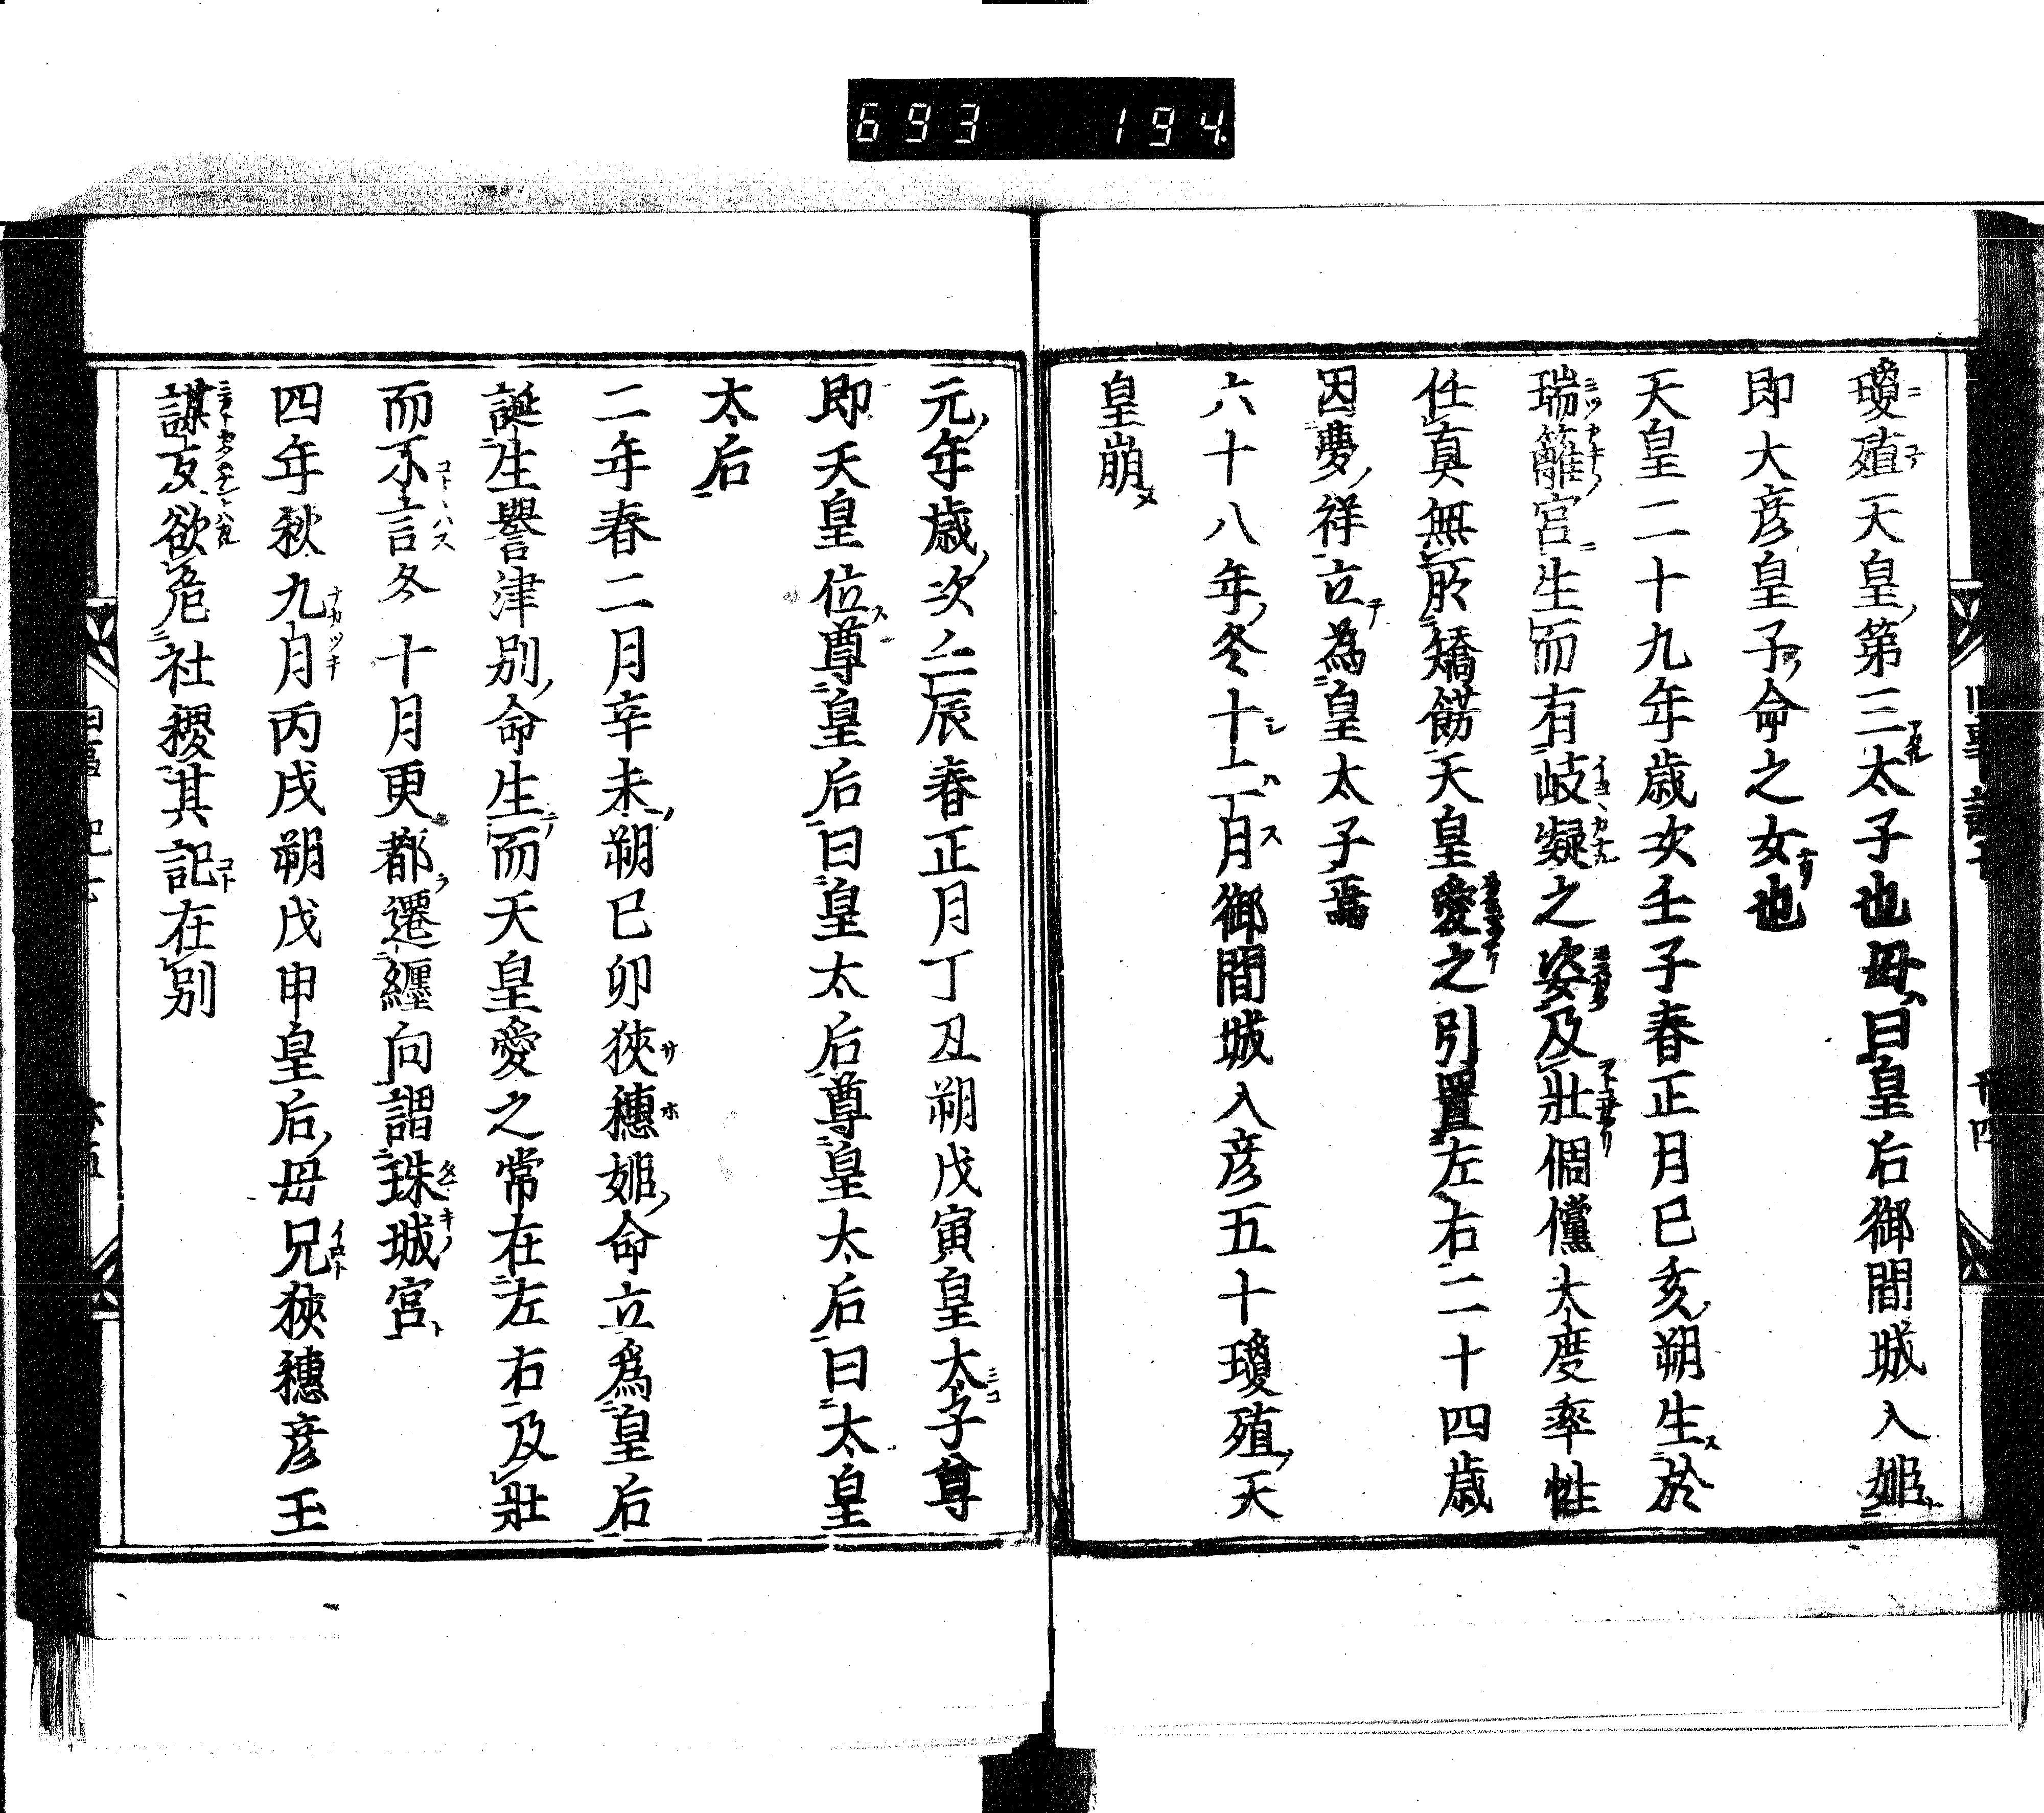 693 194
瓊殖天皇第三太子也母曰皇后御間城入姫
即大彦皇子命之女也
天皇二十九年歳次壬子春正月己亥朔生於
瑞籬宮生而有岐嶷之姿及壯倜儻太度率性
任真無所矯餝天皇愛之引置左右二十四歳
因夢祥立為皇太子焉
六十八年冬十二月御間城入彦五十瓊殖天
皇崩
元年歳次壬辰春正月丁丑朔戊寅皇太子尊
即天皇位尊皇后曰皇太后尊皇太后曰太皇
太后
二年春二月辛未朔己卯狹穗姫命立爲皇后
誕生譽津別命生而天皇愛之常在左右及壯
而不言冬十月更都遷纏向謂珠城宮
四年秋九月丙戌朔戊申皇后母兄狹穗彦王
謀反欲危社稷其記在別